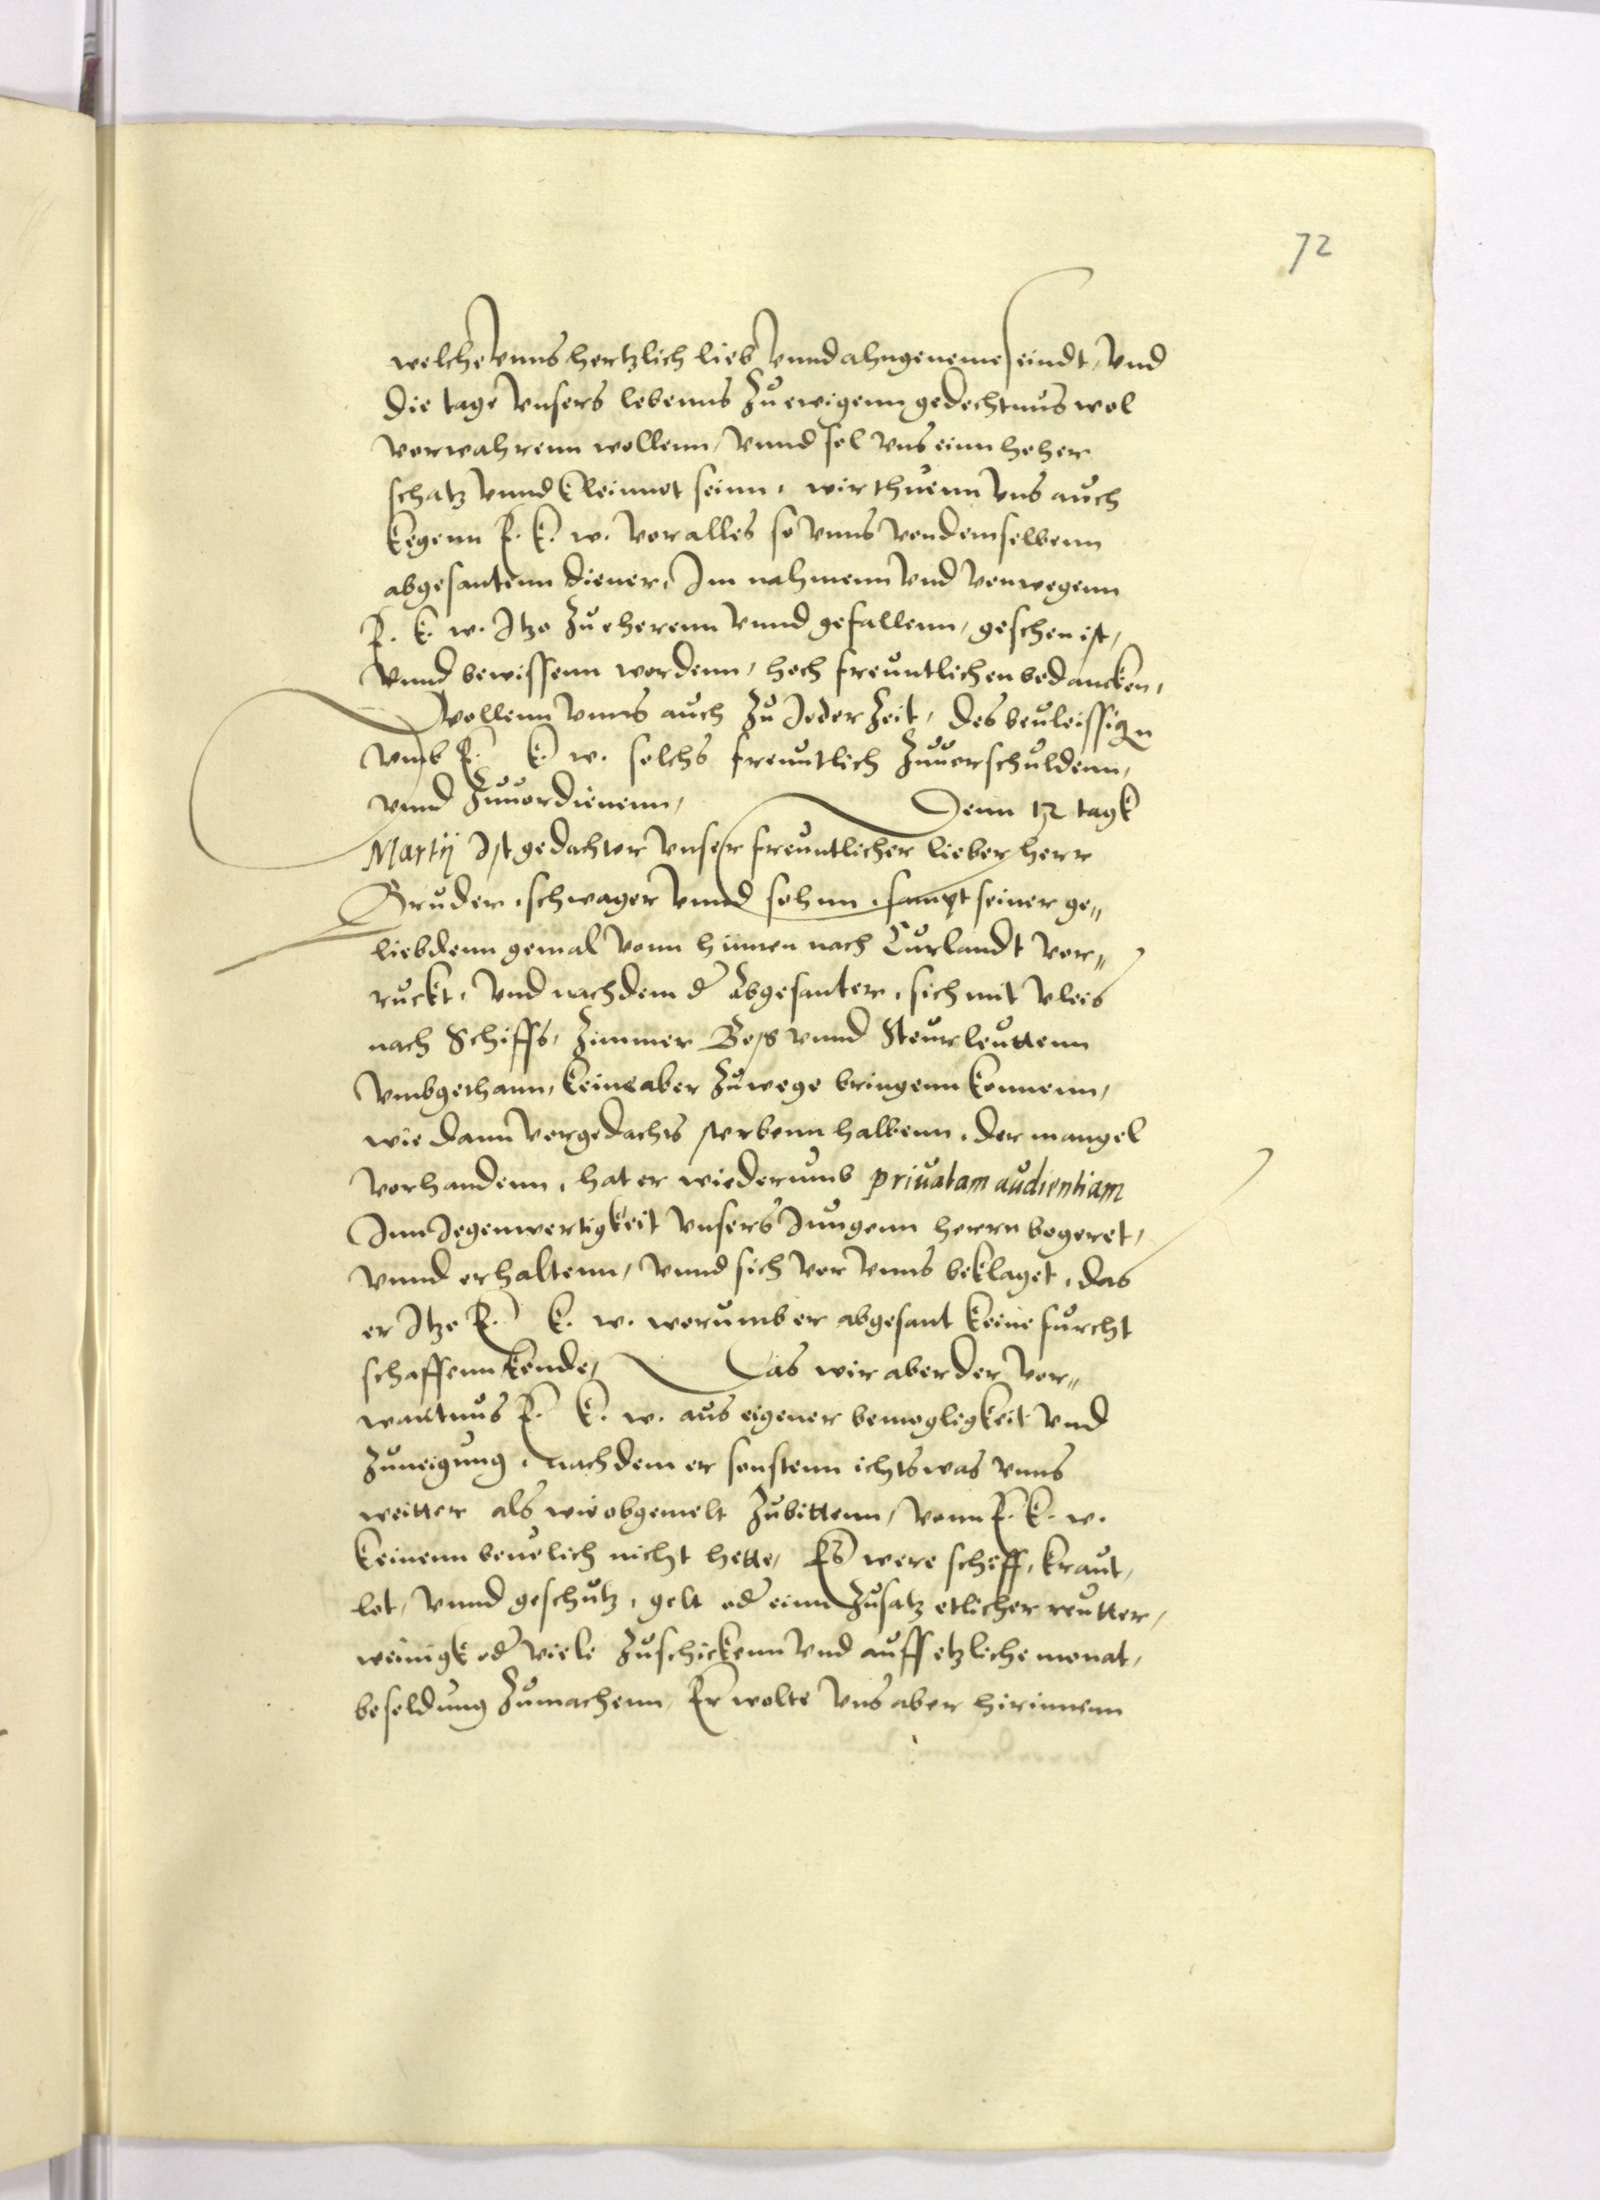 72
welche vnns hertzlich lieb vnnd ahngeneme seindt, vnd
die tage vnsers lebenns zu ewigenn gedechtnus wol
vorwahrenn wollenn, vnnd sol vns einn hoher
schatz vnnd kleinnot seinn, wir thuenn vns auch
kegenn E. k. w. vor alles so vnns von demselbenn
abgesantenn diener, Im nahmenn vnd vonwegenn
E. k. w. Itzo zu eherenn vnnd gefallenn, geschen ist,
vnnd bewissenn wordenn, hoch freuntlichen bedancken,
Wollenn vnns auch zu Jeder zeit, des beuleissign
vmb E. k. w. solchs freuntlich zuuorschuldenn,
vnnd zuuordienenn, Denn 12 tagk
Martij Ist gedachter vnser freuntlicher lieber herr
Bruder, schwager vnnd sohnn, sampt seiner ge„
liebdenn gemal vonn hinnen nach Curlandt vor„
ruckt, vnd nachdem d abgesanter, sich mit vleis
nach Schiffs, Zimmer Bos vnnd Steurleuttenn
vmbgethann, keine aber zuwege bringenn konnenn,
wie dann vorgedachts sterbenn halbenn, der mangel
vorhandenn, hat er wiederumb priuatam audientiam
Inn Jegenwertigkeit vnsers Jungenn herrn begeret,
vnnd erhaltenn, vnnd sich vor vnns beklaget, das
er Itzo E. k. w. worumb er abgesant keine furcht
schaffenn konde, Das wir aber der vor„
wantnus E. k. w. aus eigener bemogligkeit vnd
zuneigung, nachdem er sonstenn ichtswas vnns
weitter als wie obgemelt zubittenn, vonn E. k. w.
keinenn beuelich nicht hette, Es were scheff, kraut,
lot, vnnd geschutz, gelt od einn zusatz etlicher reutter,
weinigk od viele zuschickenn vnd auff etzliche monat,
besoldung zumachenn, Er wolte vns aber hirinnenn